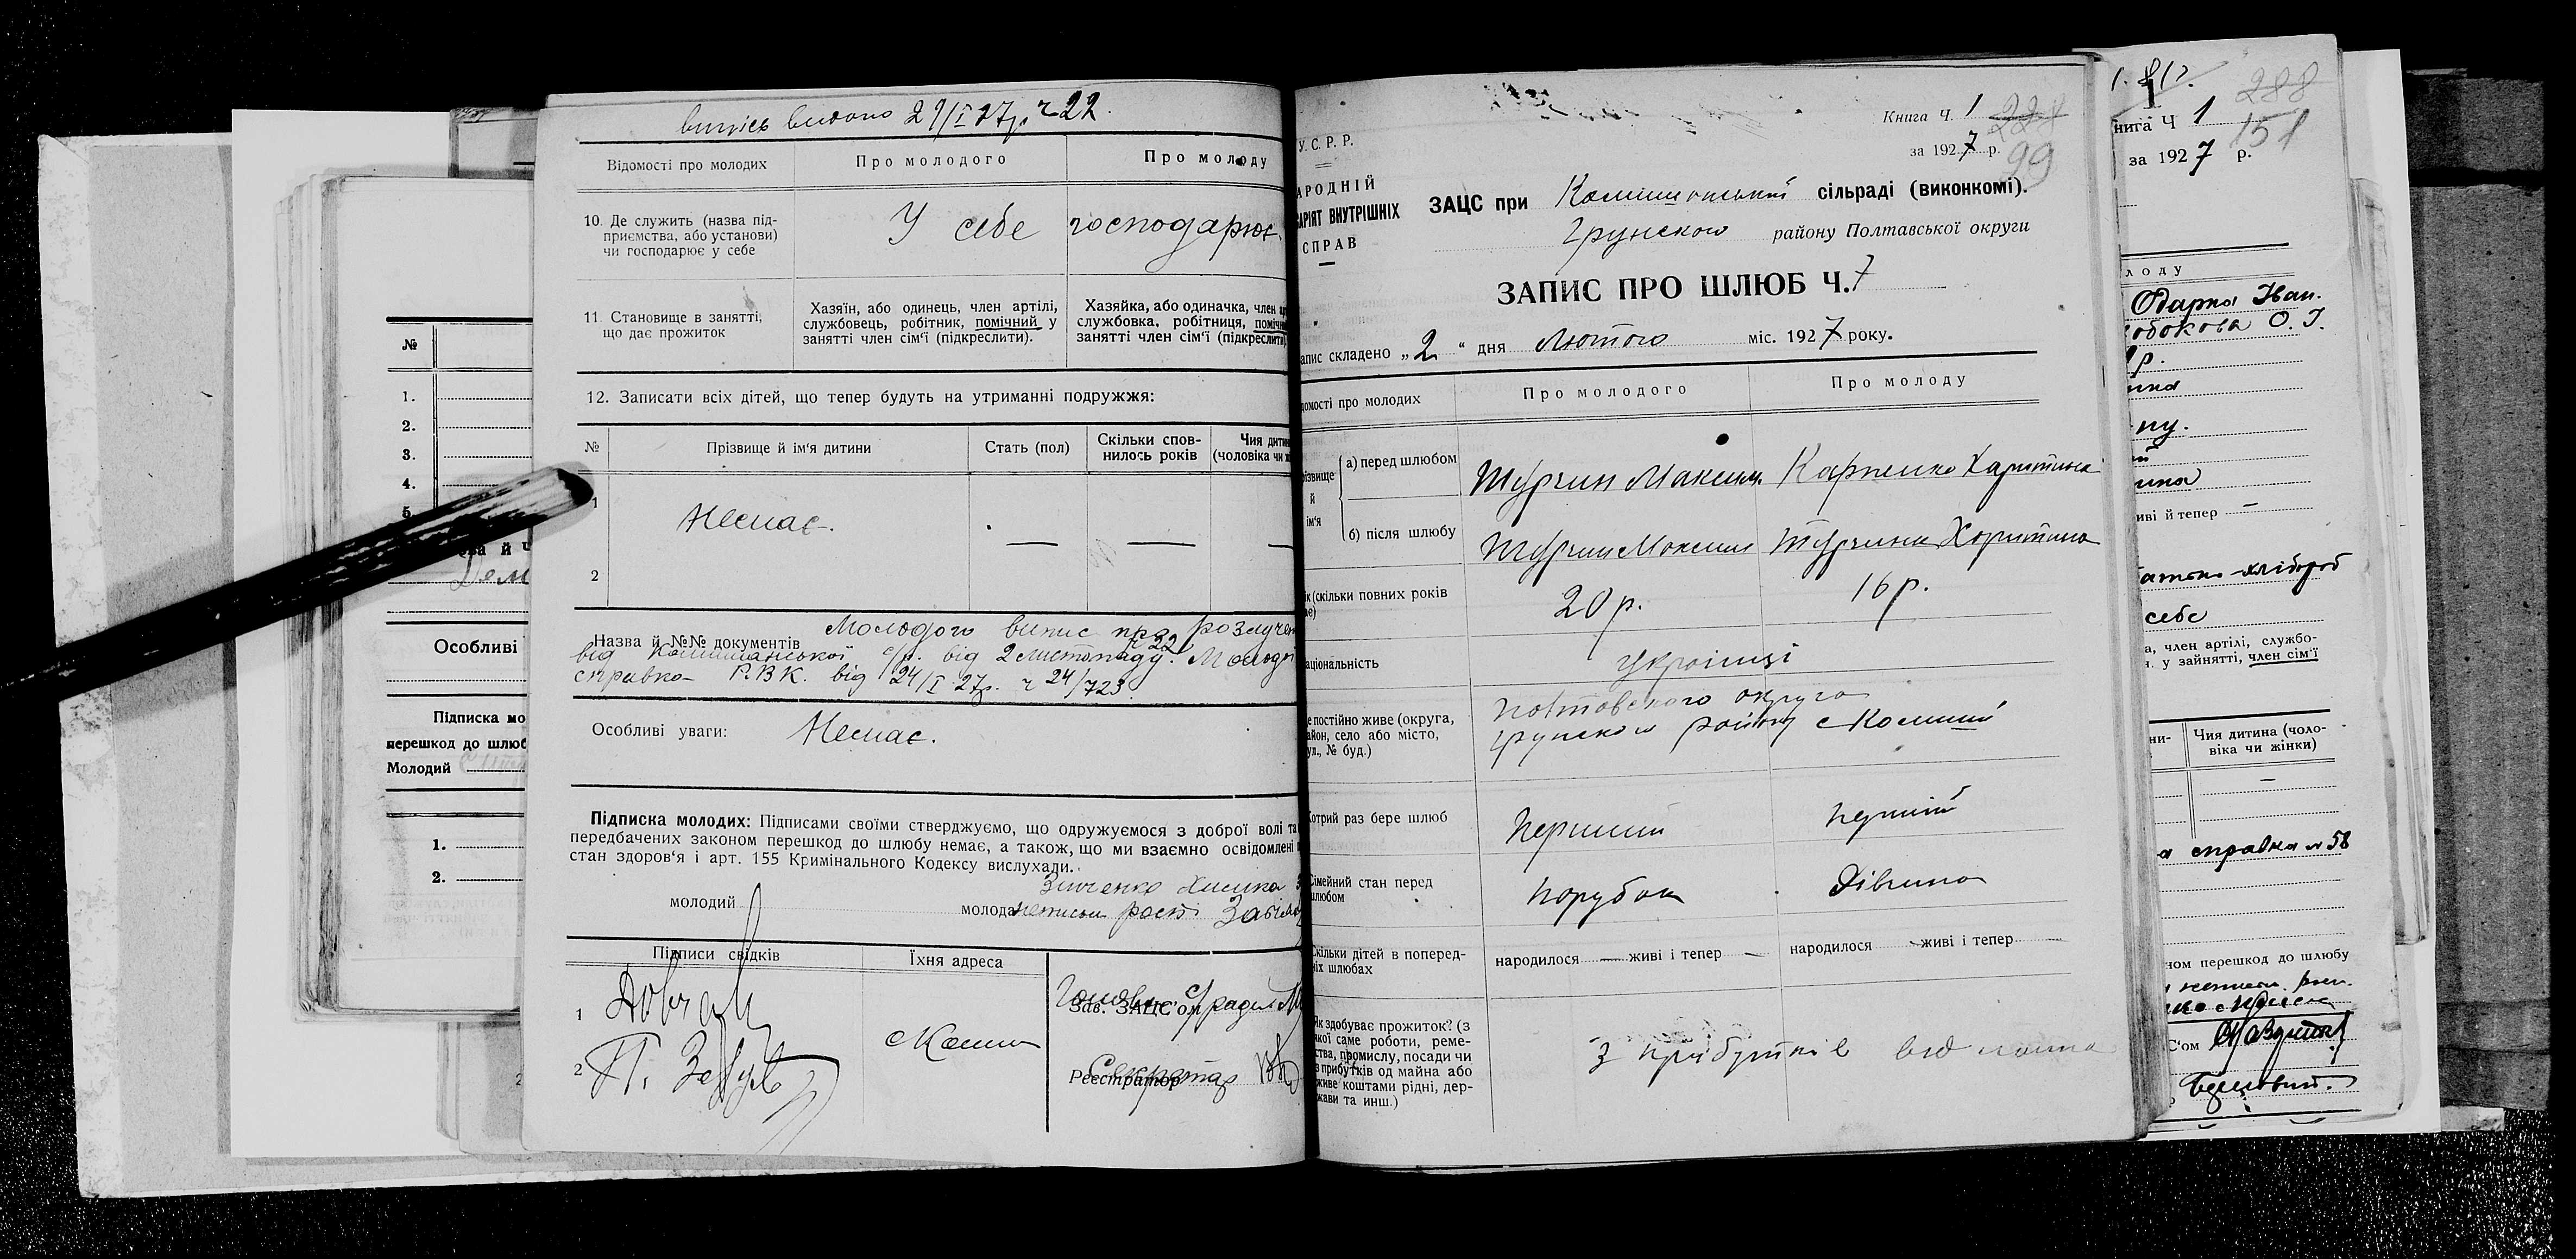 №
1.
2.
3.
4.
5.
Дем
Особливі
Підписка мо
перешкод до шлюб
Молодий
1.
2.
випись видано 29/I 27р. ч 22.
Відомості про молодих
Про молодого
Про молоду
10. Де служить (назва під-
приємства, або установи)
чи господарює у себе
У себе господарює.
11. Становище в занятті,
що дає прожиток
Хазяїн, або одинець, член артілі,
службовець, робітник, помічний у
занятті член сім'ї (підкреслити).
Хазяйка, або одиначка, член ар
службовка, робітниця, помічн
занятті член сім'ї (підкреслити)
12. Записати всіх дітей, що тепер будуть на утриманні подружжя:
№
Прізвище й ім'я дитини
Стать (пол)
Скільки спов-
нилось років
Чия дитин
(чоловіка чи ж
1
Немає.
2
Назва й №№ документів Молодого випис про розлучен
від Комишанської с/р. від 2 листопаду ч 22. Молодої
справка Р.В.К. від 24/I 27р. ч 24/723.
Особливі уваги: Немає.
Підписка молодих: Підписами своїми стверджуємо, що одружуємося з доброї волі та
передбачених законом перешкод до шлюбу немає, а також, що ми взаємно освідомлені п
стан здоров'я і арт. 155 Кримінального Кодексу вислухали.
молодий
молода
Підписи свідків
Їхня адреса
1
2
Зав. ЗАЦС'ом
Реєстратор
Секретар
У.С.Р.Р.
АРОДНІЙ
АРІЯТ ВНУТРІШНІХ
СПРАВ
Книга Ч. 1
за 1927 р.
99
ЗАЦС при Комишанській сільраді (виконкомі).
Грунського району Полтавської округи
ЗАПИС ПРО ШЛЮБ Ч. 7
апис складено „2“ дня Лютого міс. 1927 року.
домості про молодих
Про молодого
Про молоду
ізвище
й
ім'я
а) перед шлюбом
Турчин Максим.
Карпенко Харитина
б) після шлюбу
Турчин Максим
Турчина Харитина
ік (скільки повних років
ає)
20 р.
16 р.
аціональність
Українці
е постійно живе (округа,
айон, село або місто,
ул., № буд.)
Полтавського округа
Грунського району с Комиші
отрий раз бере шлюб
Перший
перший
Сімейний стан перед
шлюбом
Парубок
Дівчина
Скільки дітей в поперед-
ніх шлюбах
народилося — живі і тепер —
народилося — живі і тепер —
Як здобуває прожиток? (з
якої саме роботи, реме-
ства, промислу, посади чи
з прибутків од майна або
живе коштами рідні, дер-
жави та инш.)
З прибутків від майна
288
нига Ч 1
151
за 1927 р.
лоду
Одарка Іван.
обокова О. І.
ина
иві й тепер —
хлібороб
себе
а, член артілі, службо-
н. у зайнятті, член сім'ї
ни-
Чия дитина (чоло-
віка чи жінки)
—
а справка № 58
ном перешкод до шлюбу
С'ом